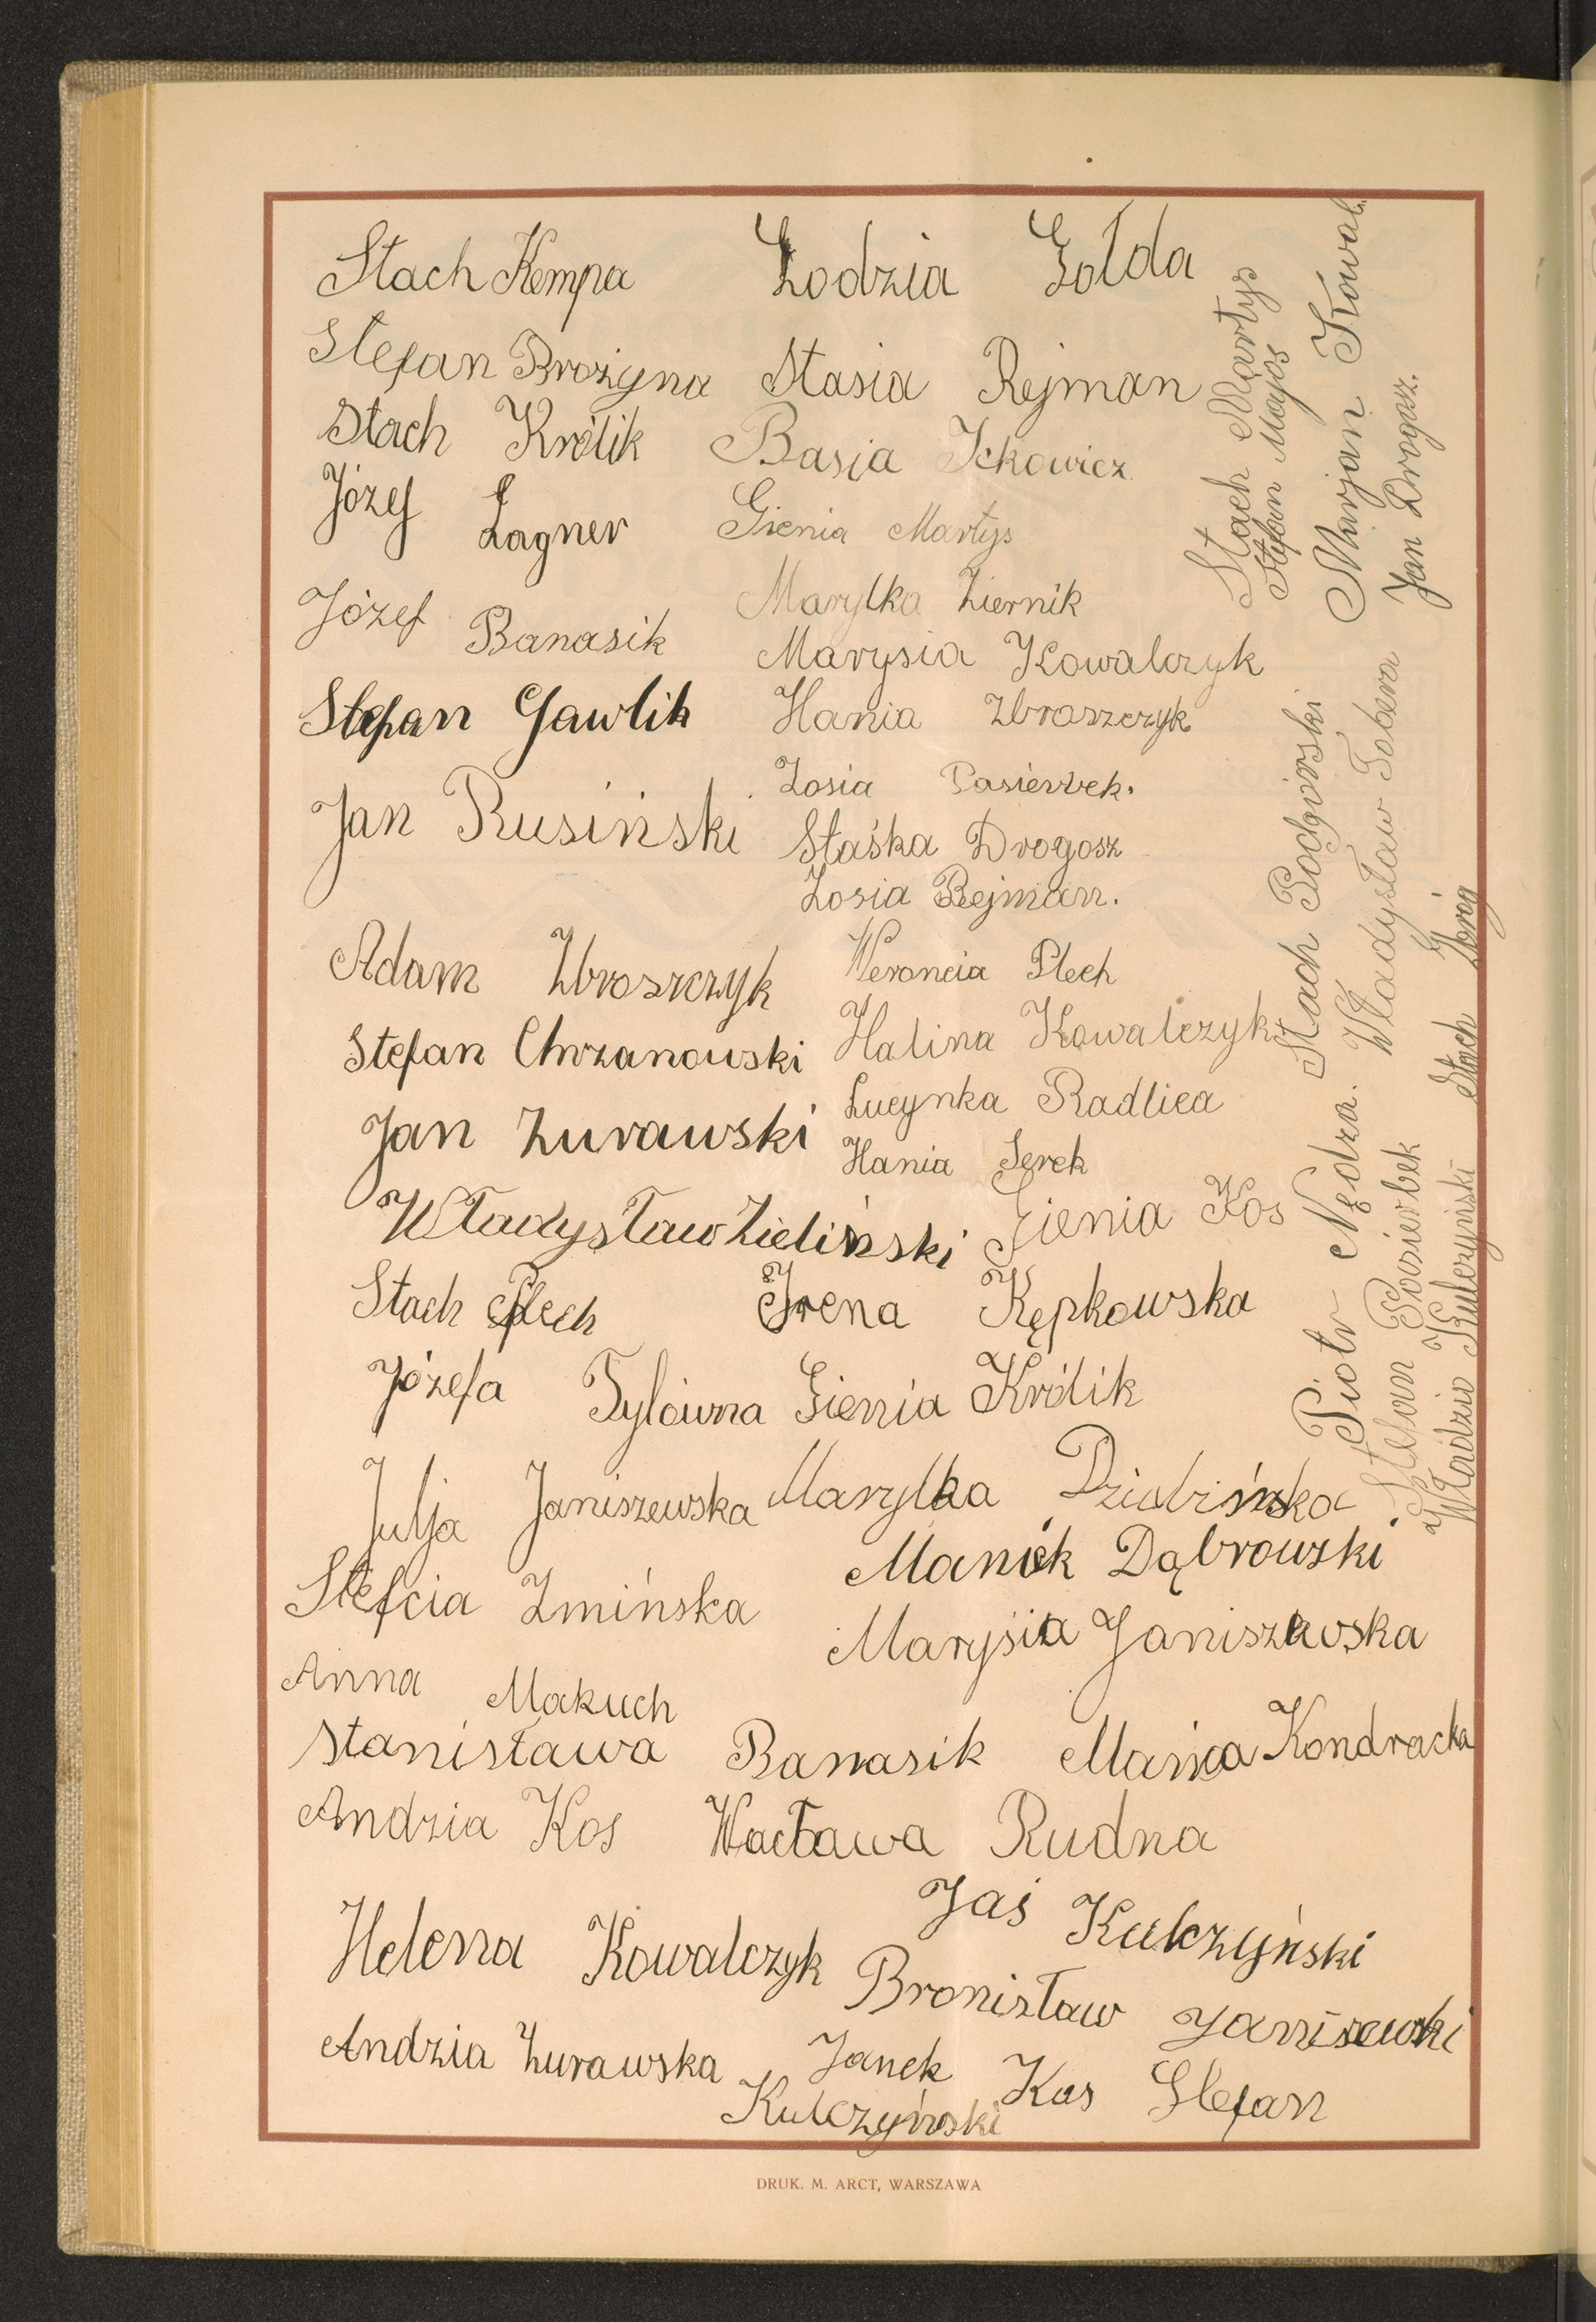 Stach Kempa
Stefan Brożyna
Stach Królik
Józef Łagner
Józef Banasik
Stefan Gawlik
Jan Rusiński
Adam Zbroszczyk
Stefan Chrzanowski
Jan Żurawski
Władysław Zieliński
Stach Plech
Józefa Tylówna
Julja Janiszewska
Stefcia Żmińska
Anna Makuch
Stanisława Banasik
Andzia Kos
Helena Kowalczyk
Andzia Żurawska
Lodzia Gołda
Stasia Rejman
Basia Ickowicz
Gienia Martys
Marylka Ziernik
Marysia Kowalczyk
Hania Zbroszczyk
Zosia Pasierbek.
Staśka Drogosz
Zosia Rejman.
Weroncia Plech
Halina Kowalczyk
Lucynka Radlica
Hania Serek
Gienia Kos
Irena Kępkowska
Gienia Królik
Marylka Dziabińska
Maniek Dąbrowski
Marysia Janiszewska
Mańka Kondracka
Wacława Rudna
Jaś Kulczyński
Bronisław Janiszewski
Janek Kulczyński
Kos Stefan
Stach Martys
Stefan Majos
Marjan Kowal.
Jan Drogosz.
Stach Podgórski
Władysław Sobera
Stach Zbróg
Piotr Nędza.
Stefan Pasierbek
Władzio Kulczyński
DRUK. M. ARCT, WARSZAWA